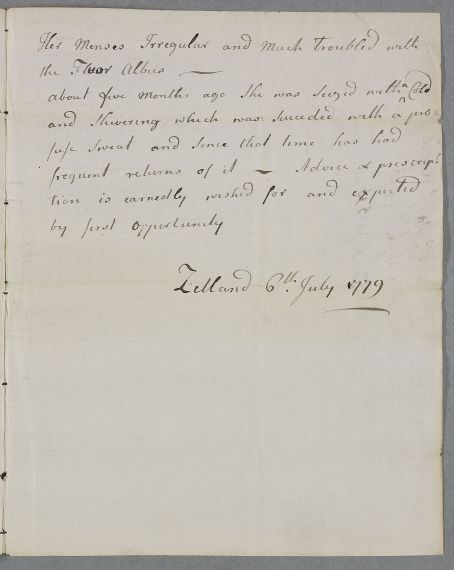 Her Menses Irregular and Much troubled with
the Fluor Albus —
about five Months ago She was seized with a Cold
and Shivering which was succeeded with a pro-
fuse Sweat and Since that time has had
frequent returns of it — Advice & prescrip-
tion is earnestly wished for and expected
by first opportunity
Zetland 6th. July 1779